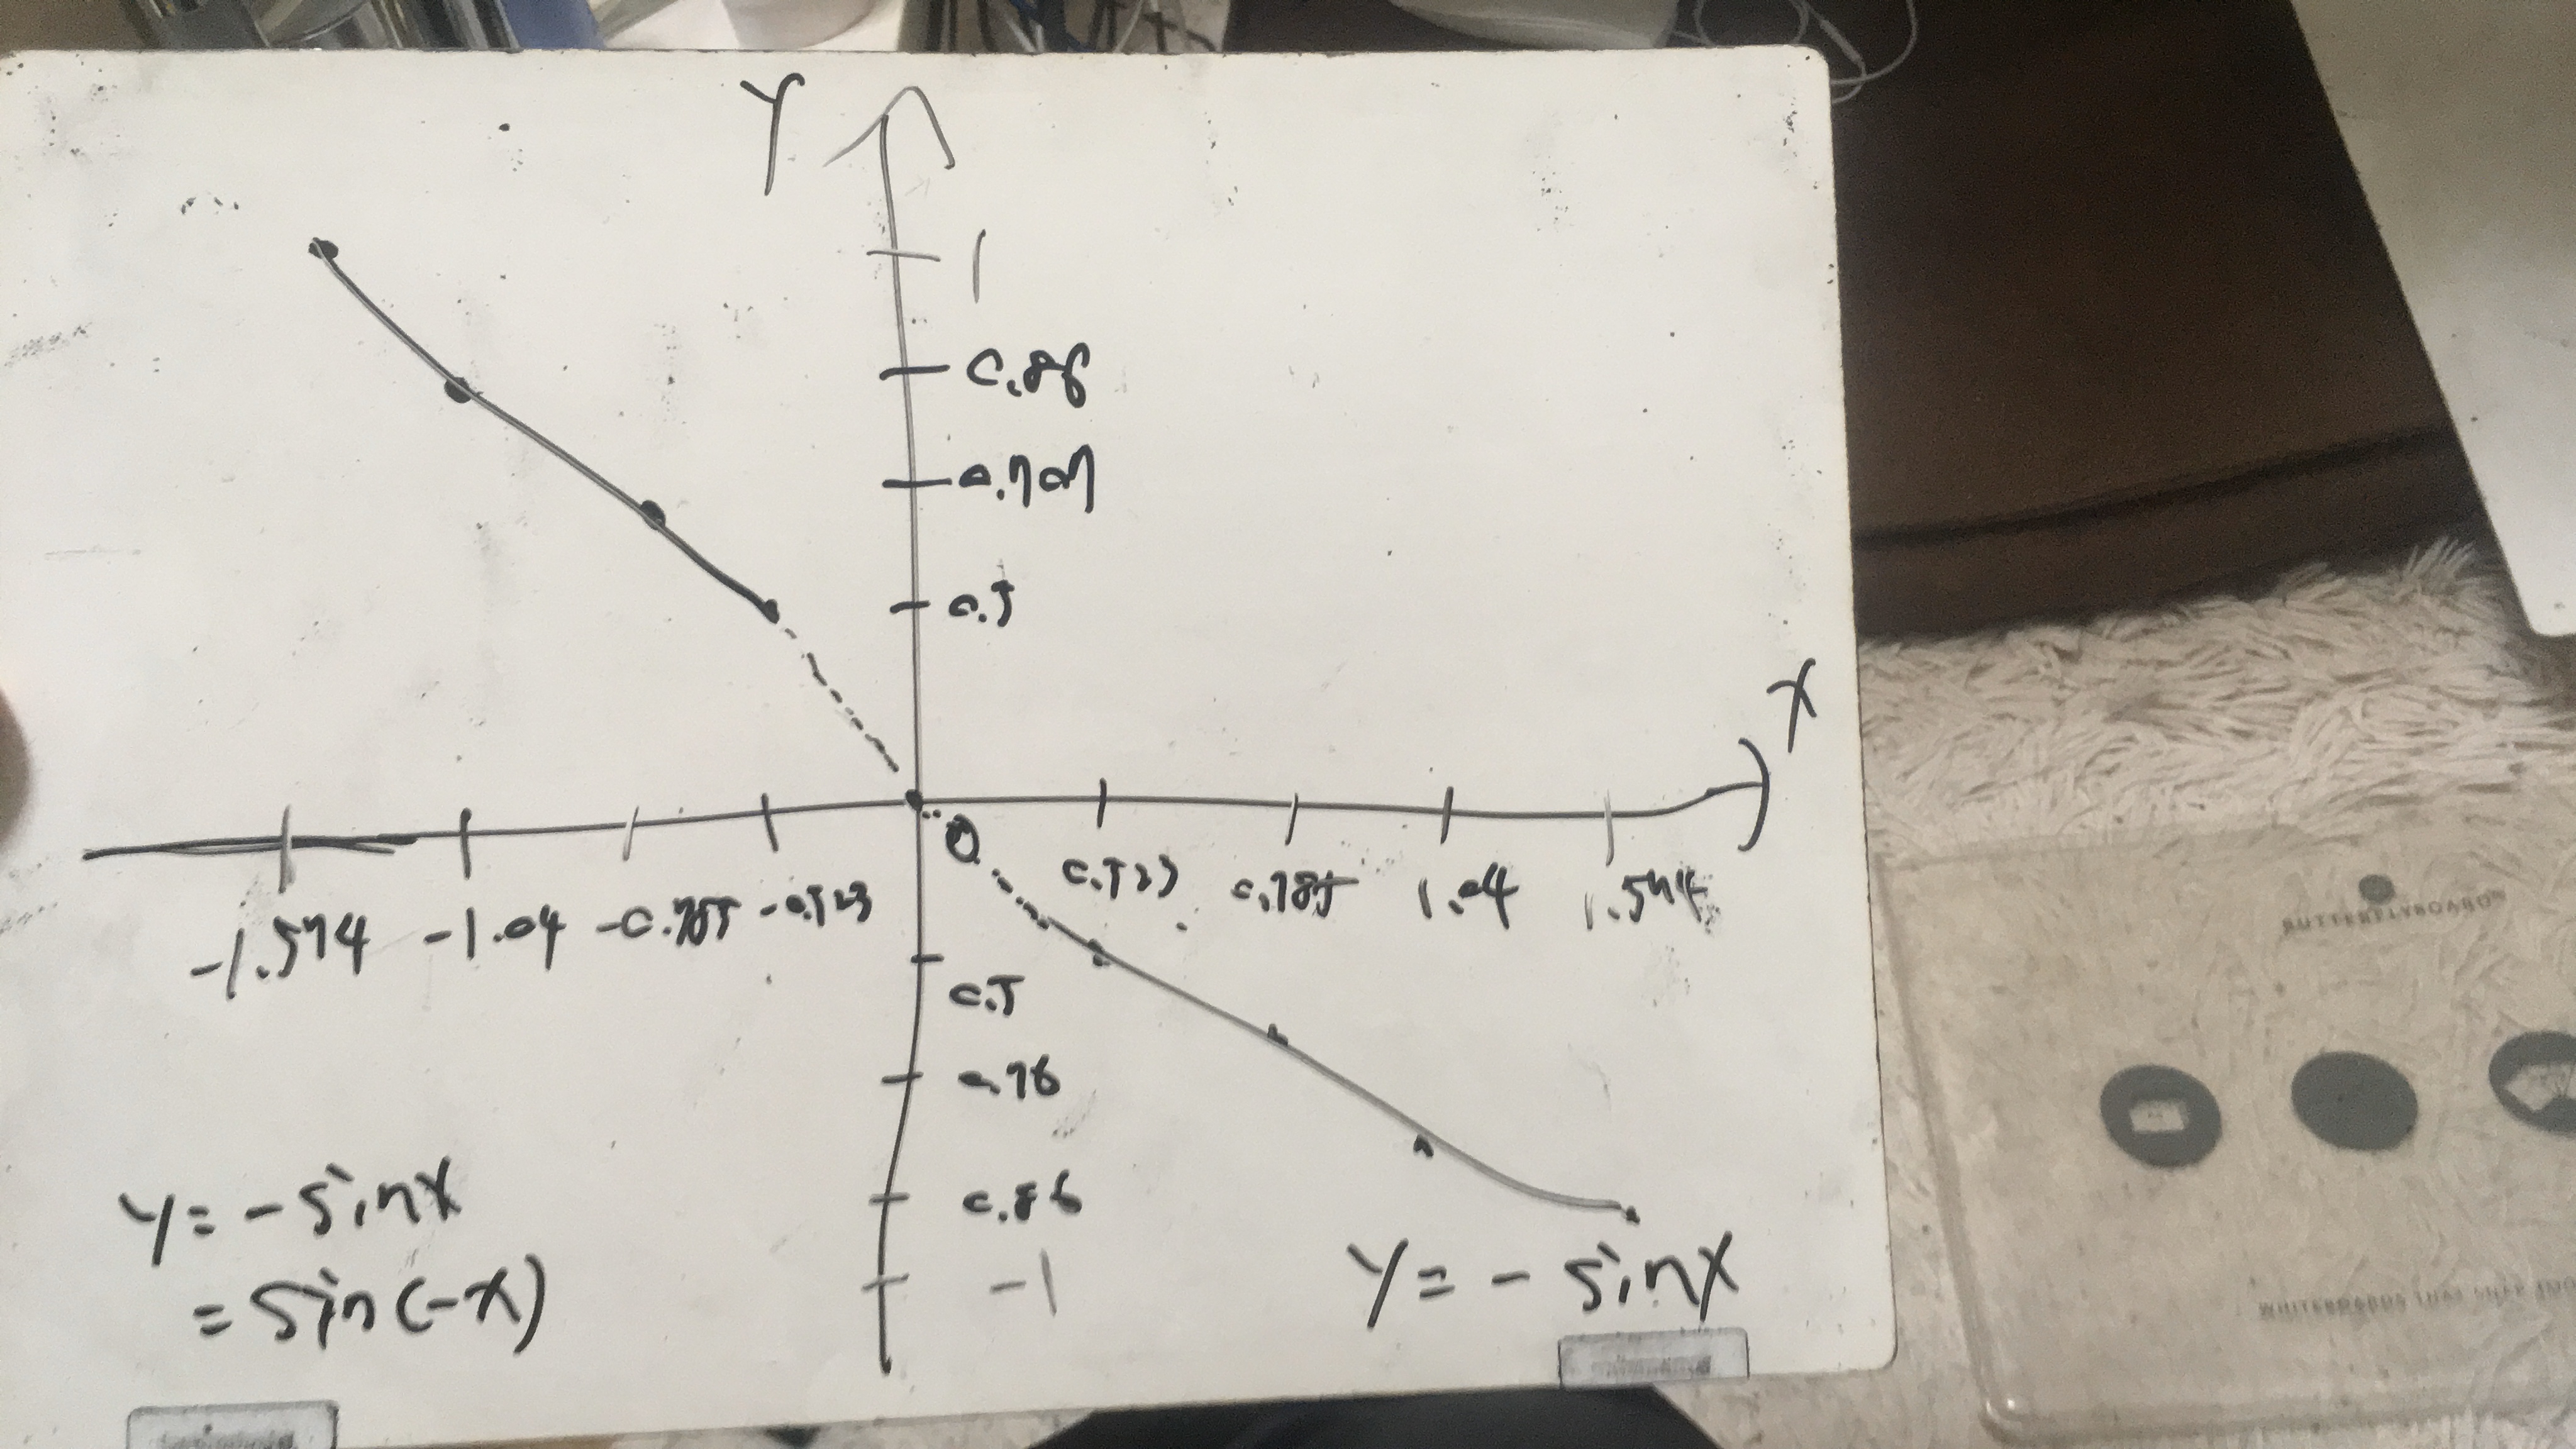 Y
1
0.86
0.707
0.5
X
0
-1.574 -1.04 -0.785 -0.523
0.523 0.785 1.04 1.574
0.5
0.76
0.86
-1
y = - sinx
= sin(-x)
y = - sinx
BUTTERFLYBOARD
WHITEBOARDS THAT